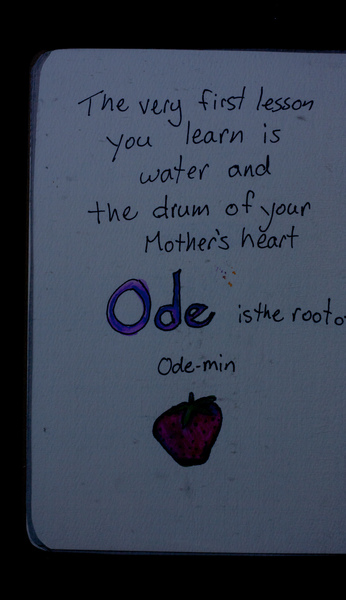 The very first lesson
you learn is
water and
the drum of your
Mother's heart
Ode is the root o
Ode-min